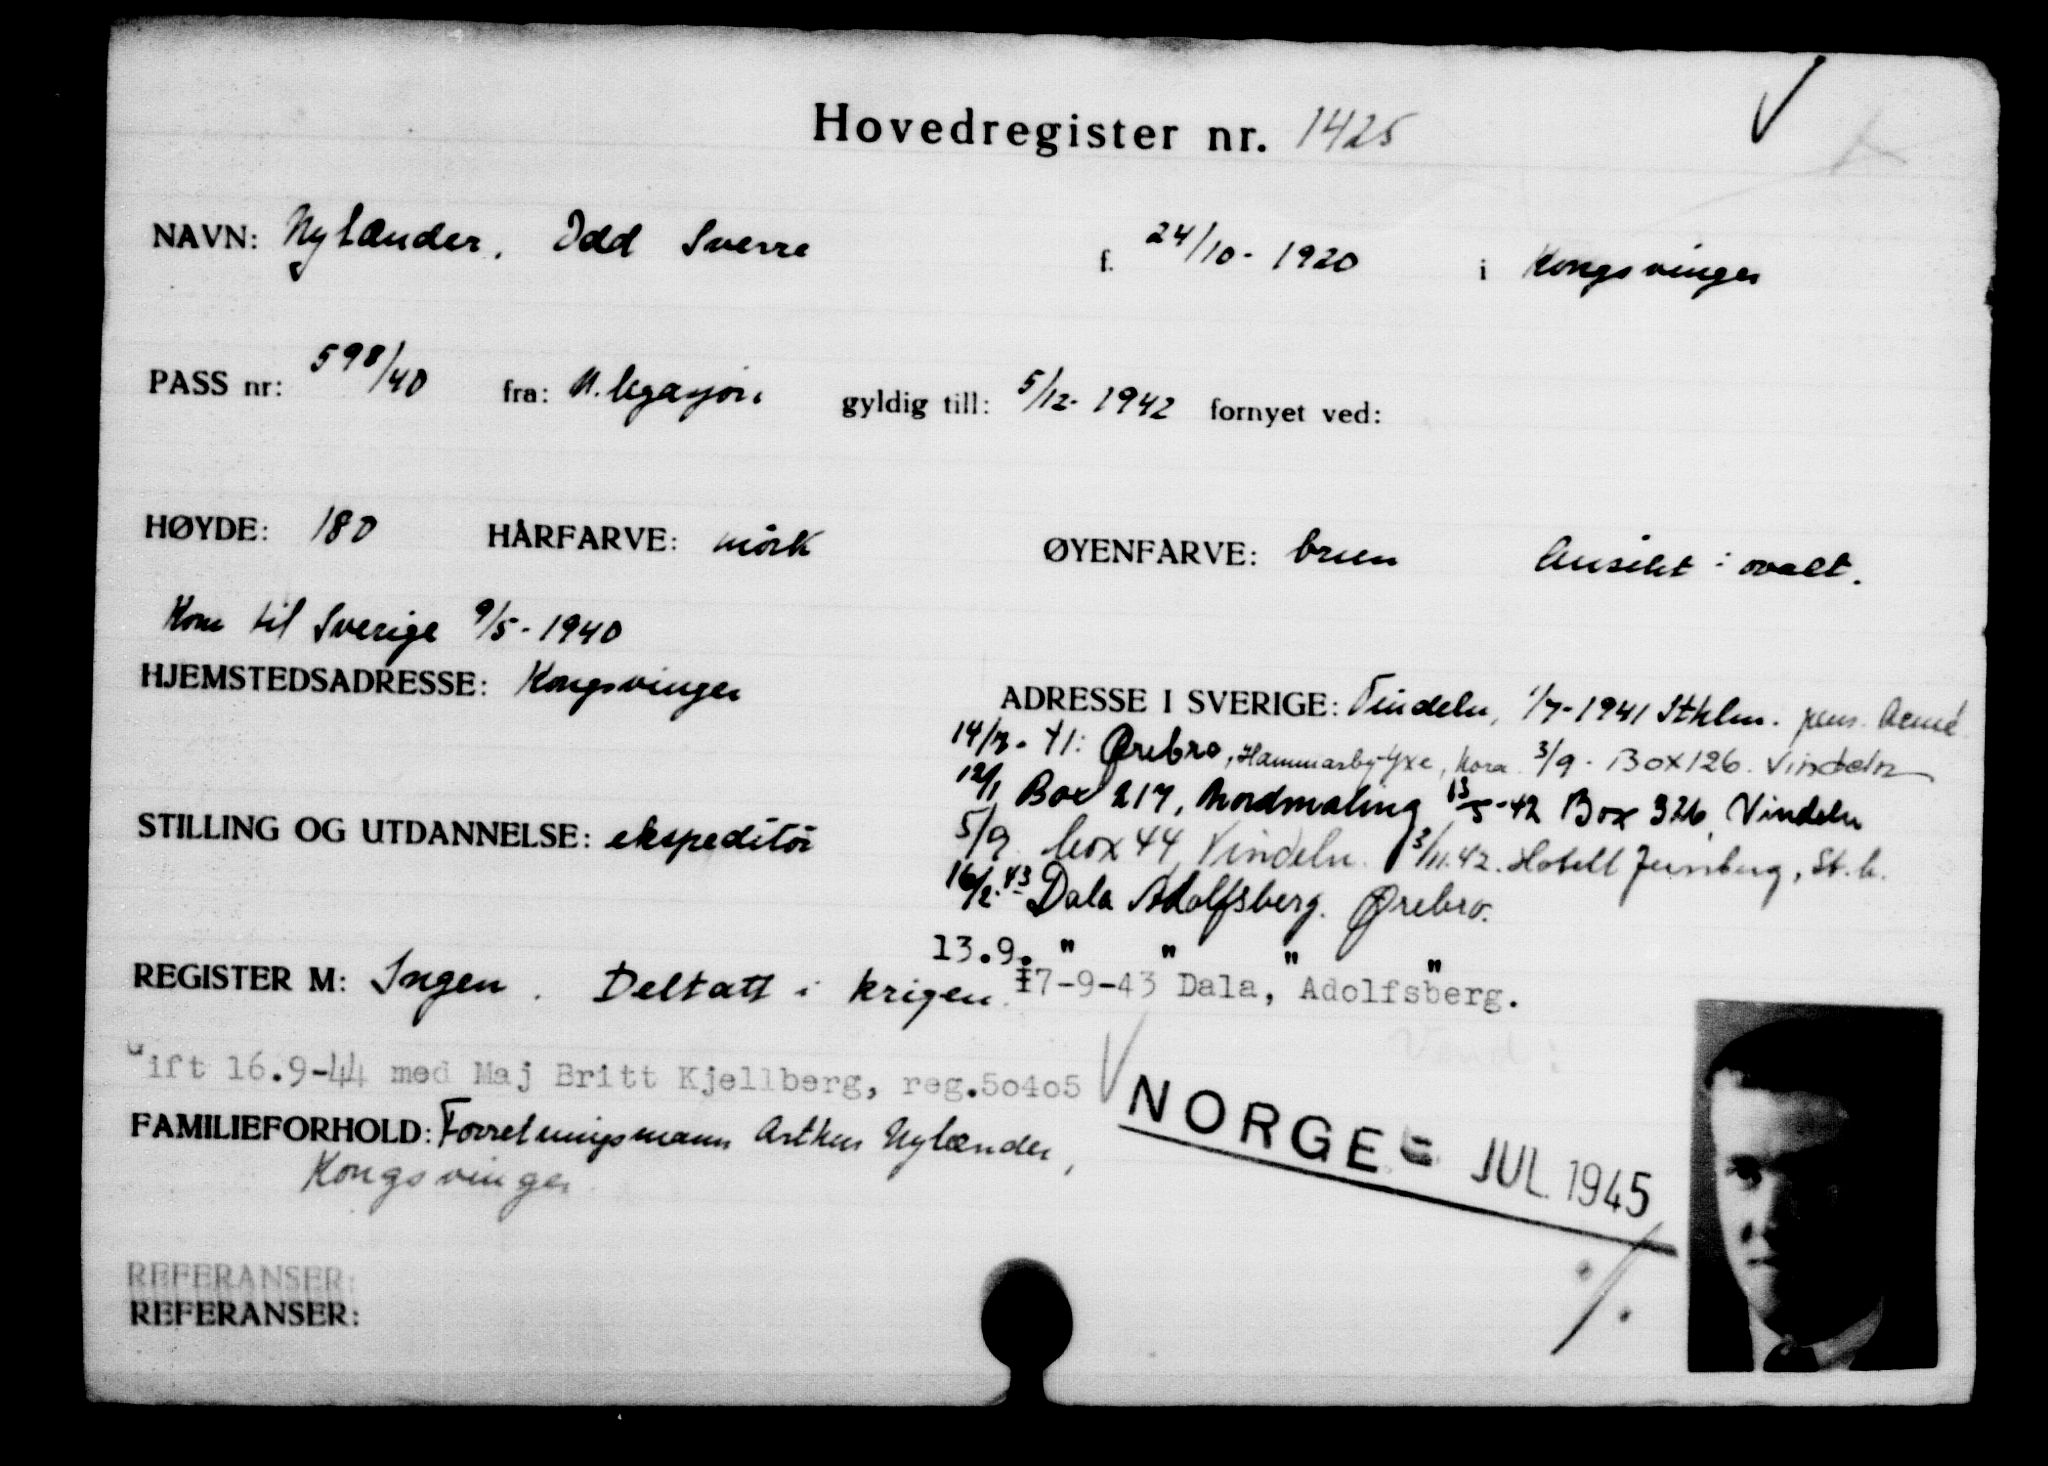 Hovedregister nr. 1425
NAVN: Nylænder, Odd Sverre f. 24/10- 1920 i Kongsvinger
PASS nr: 598/40 fra: N. legasjon gyldig till: 5/12- 1942 fornyet ved:
HØYDE: 180 HÅRFARVE: mørk ØYENFARVE: brun Ansikt: ovalt.
Kom til Sverige 9/5-1940
HJEMSTEDSADRESSE: Kongsvinger
ADRESSE I SVERIGE: Vindeln, 1/7-1941 Sthlm. pens. Acmé
14/7- 41: Ørebro, Hammarby-Yxe, Nora 3/9- Box 126. Vindeln
12/1 Box 217, Nordmaling 13/5-42 Box 326, Vindeln
STILLING OG UTDANNELSE: ekspeditør
5/9 box 44 Vindeln. 3/11.42. Hotell Jernberg, St.h.
16/2-43 Dala Adolfsberg. Ørebro.
13.9. " " " "
REGISTER M: Ingen. Deltatt i krigen. 17-9-43 Dala, Adolfsberg.
Vend:
Gift 16.9-44 med Maj Britt Kjellberg, reg.50405
NORGE = JUL 1945
FAMILIEFORHOLD: Forretningsmann Arthur Nylænder,
Kongsvinger
./.
REFERANSER:
REFERANSER: